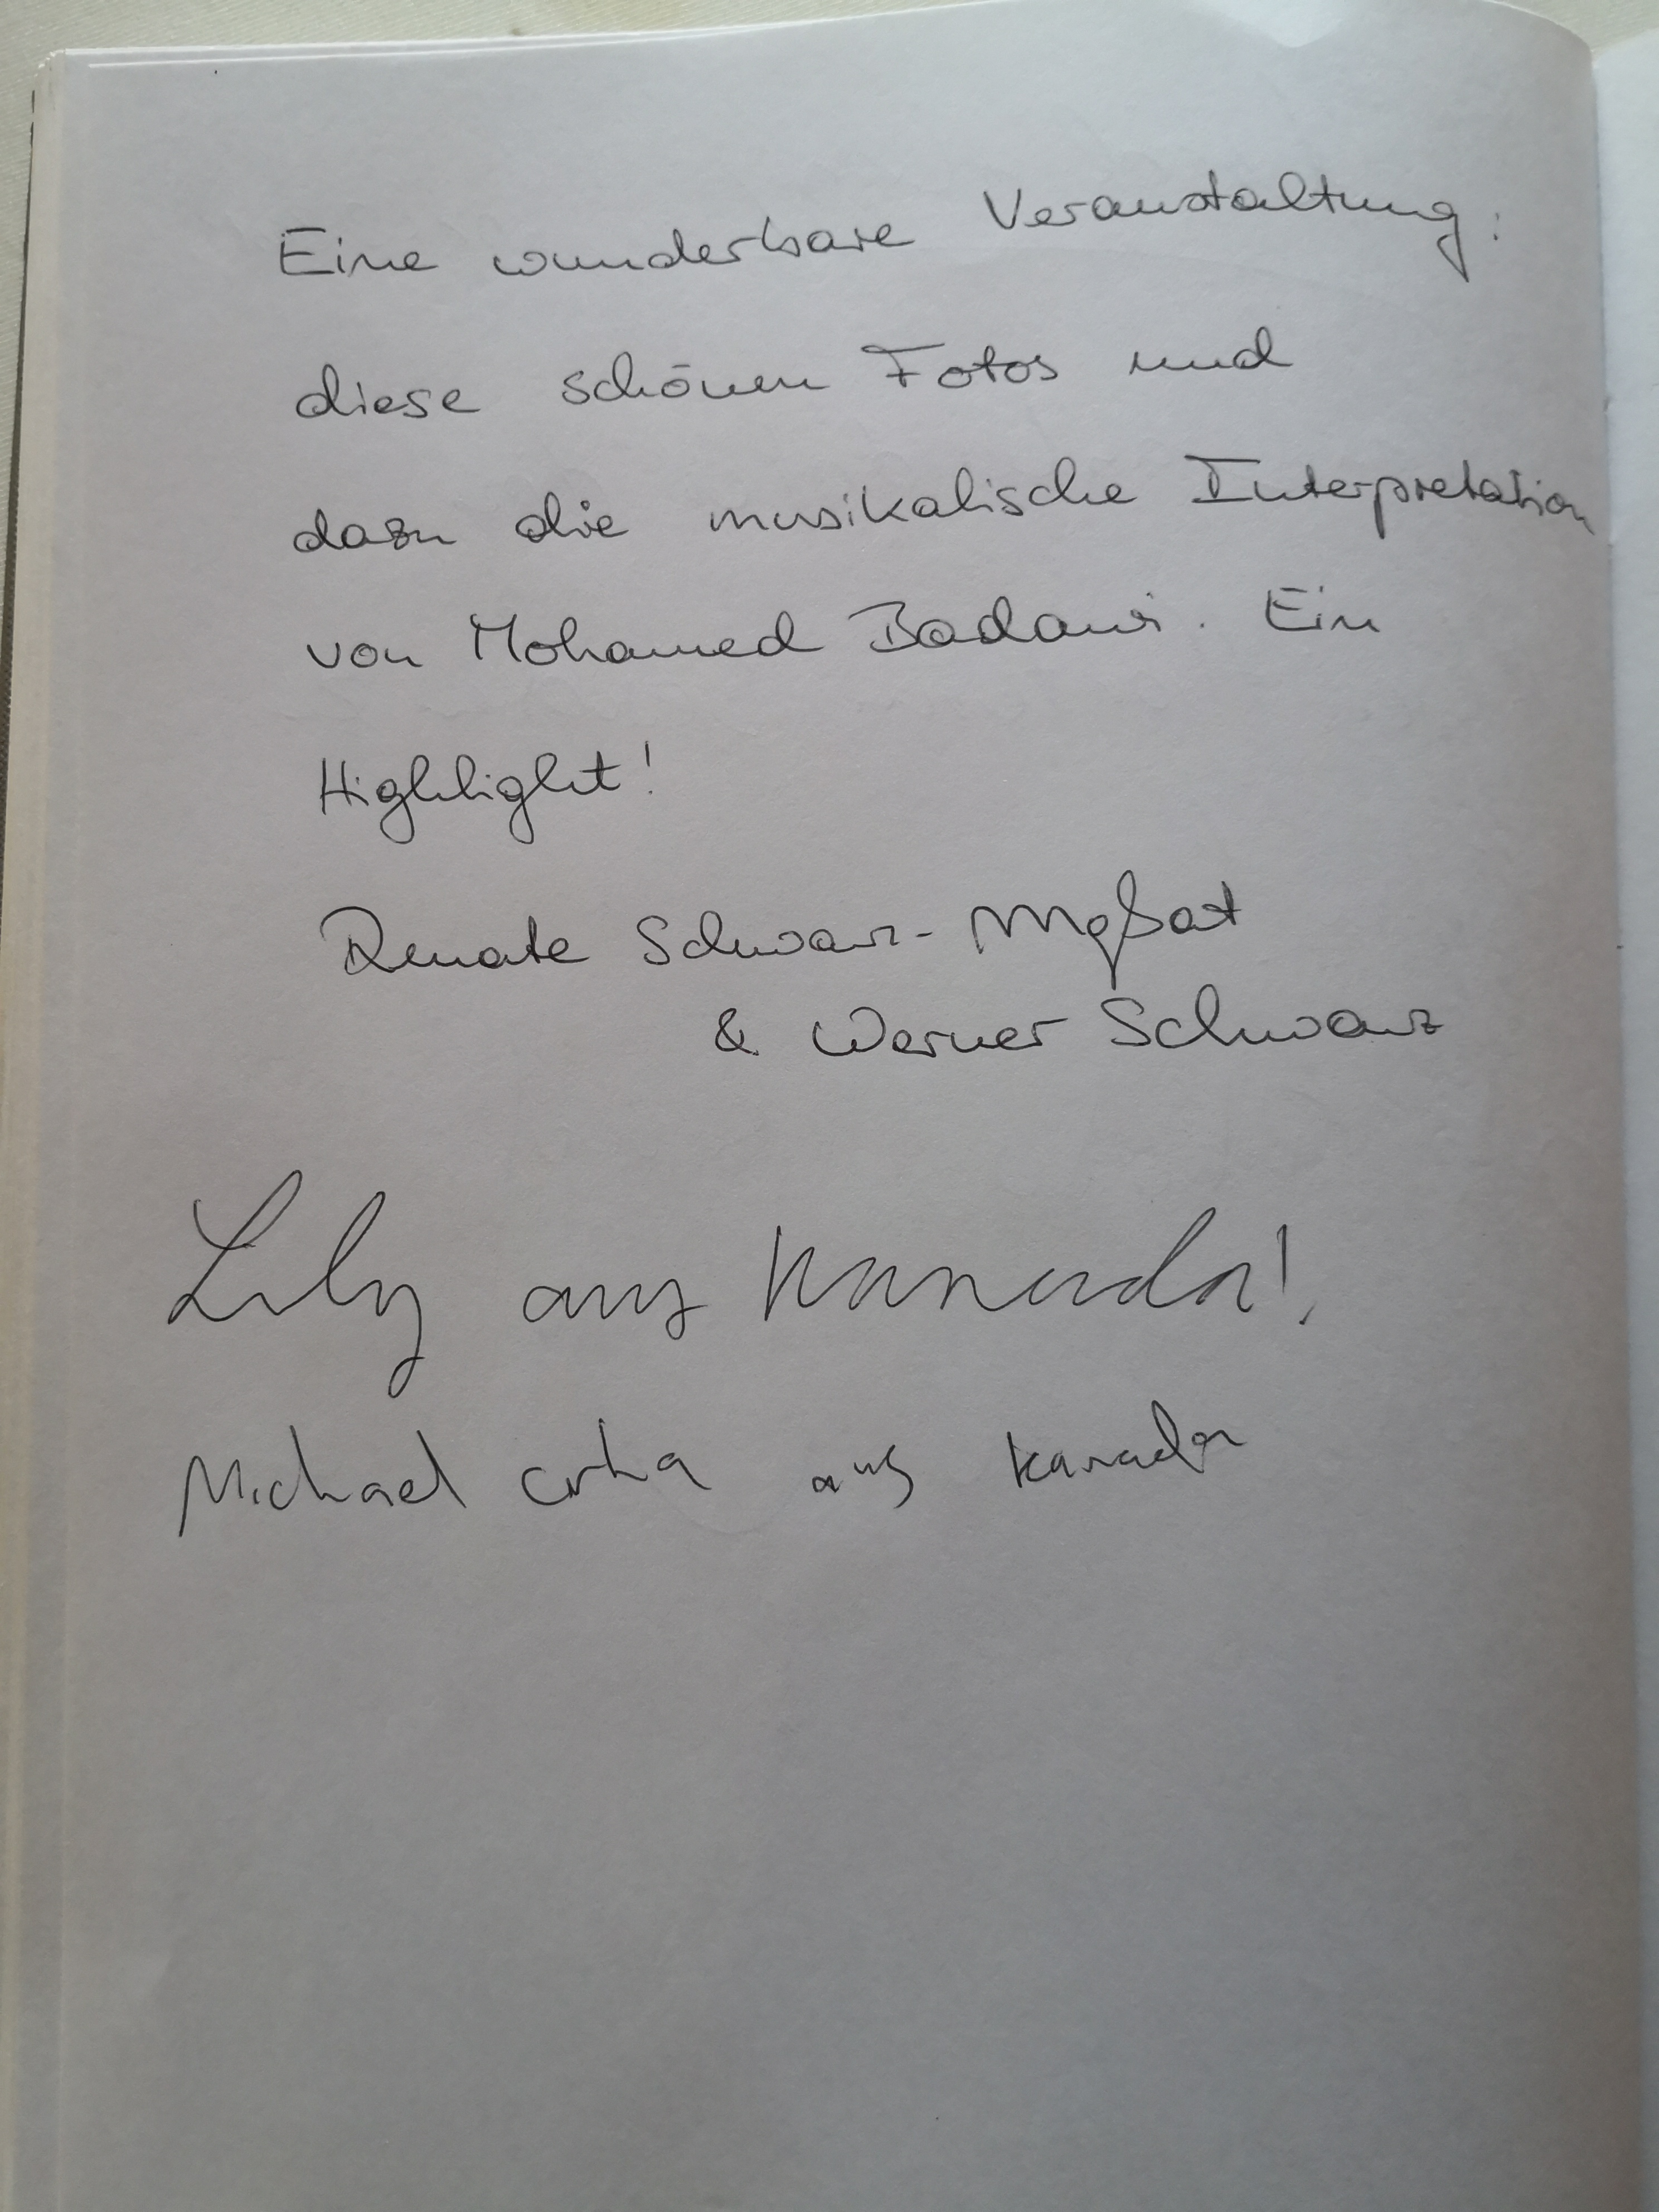 Eine wunderbare Veranstaltung:
diese schönen Fotos und
dazu die musikalische Interpretation
von Mohamed Badawi. Ein
Highlight!
Renate Schwarz-
& Werner Schwarz
Lily aus Kanada!
Michael aus Kanada